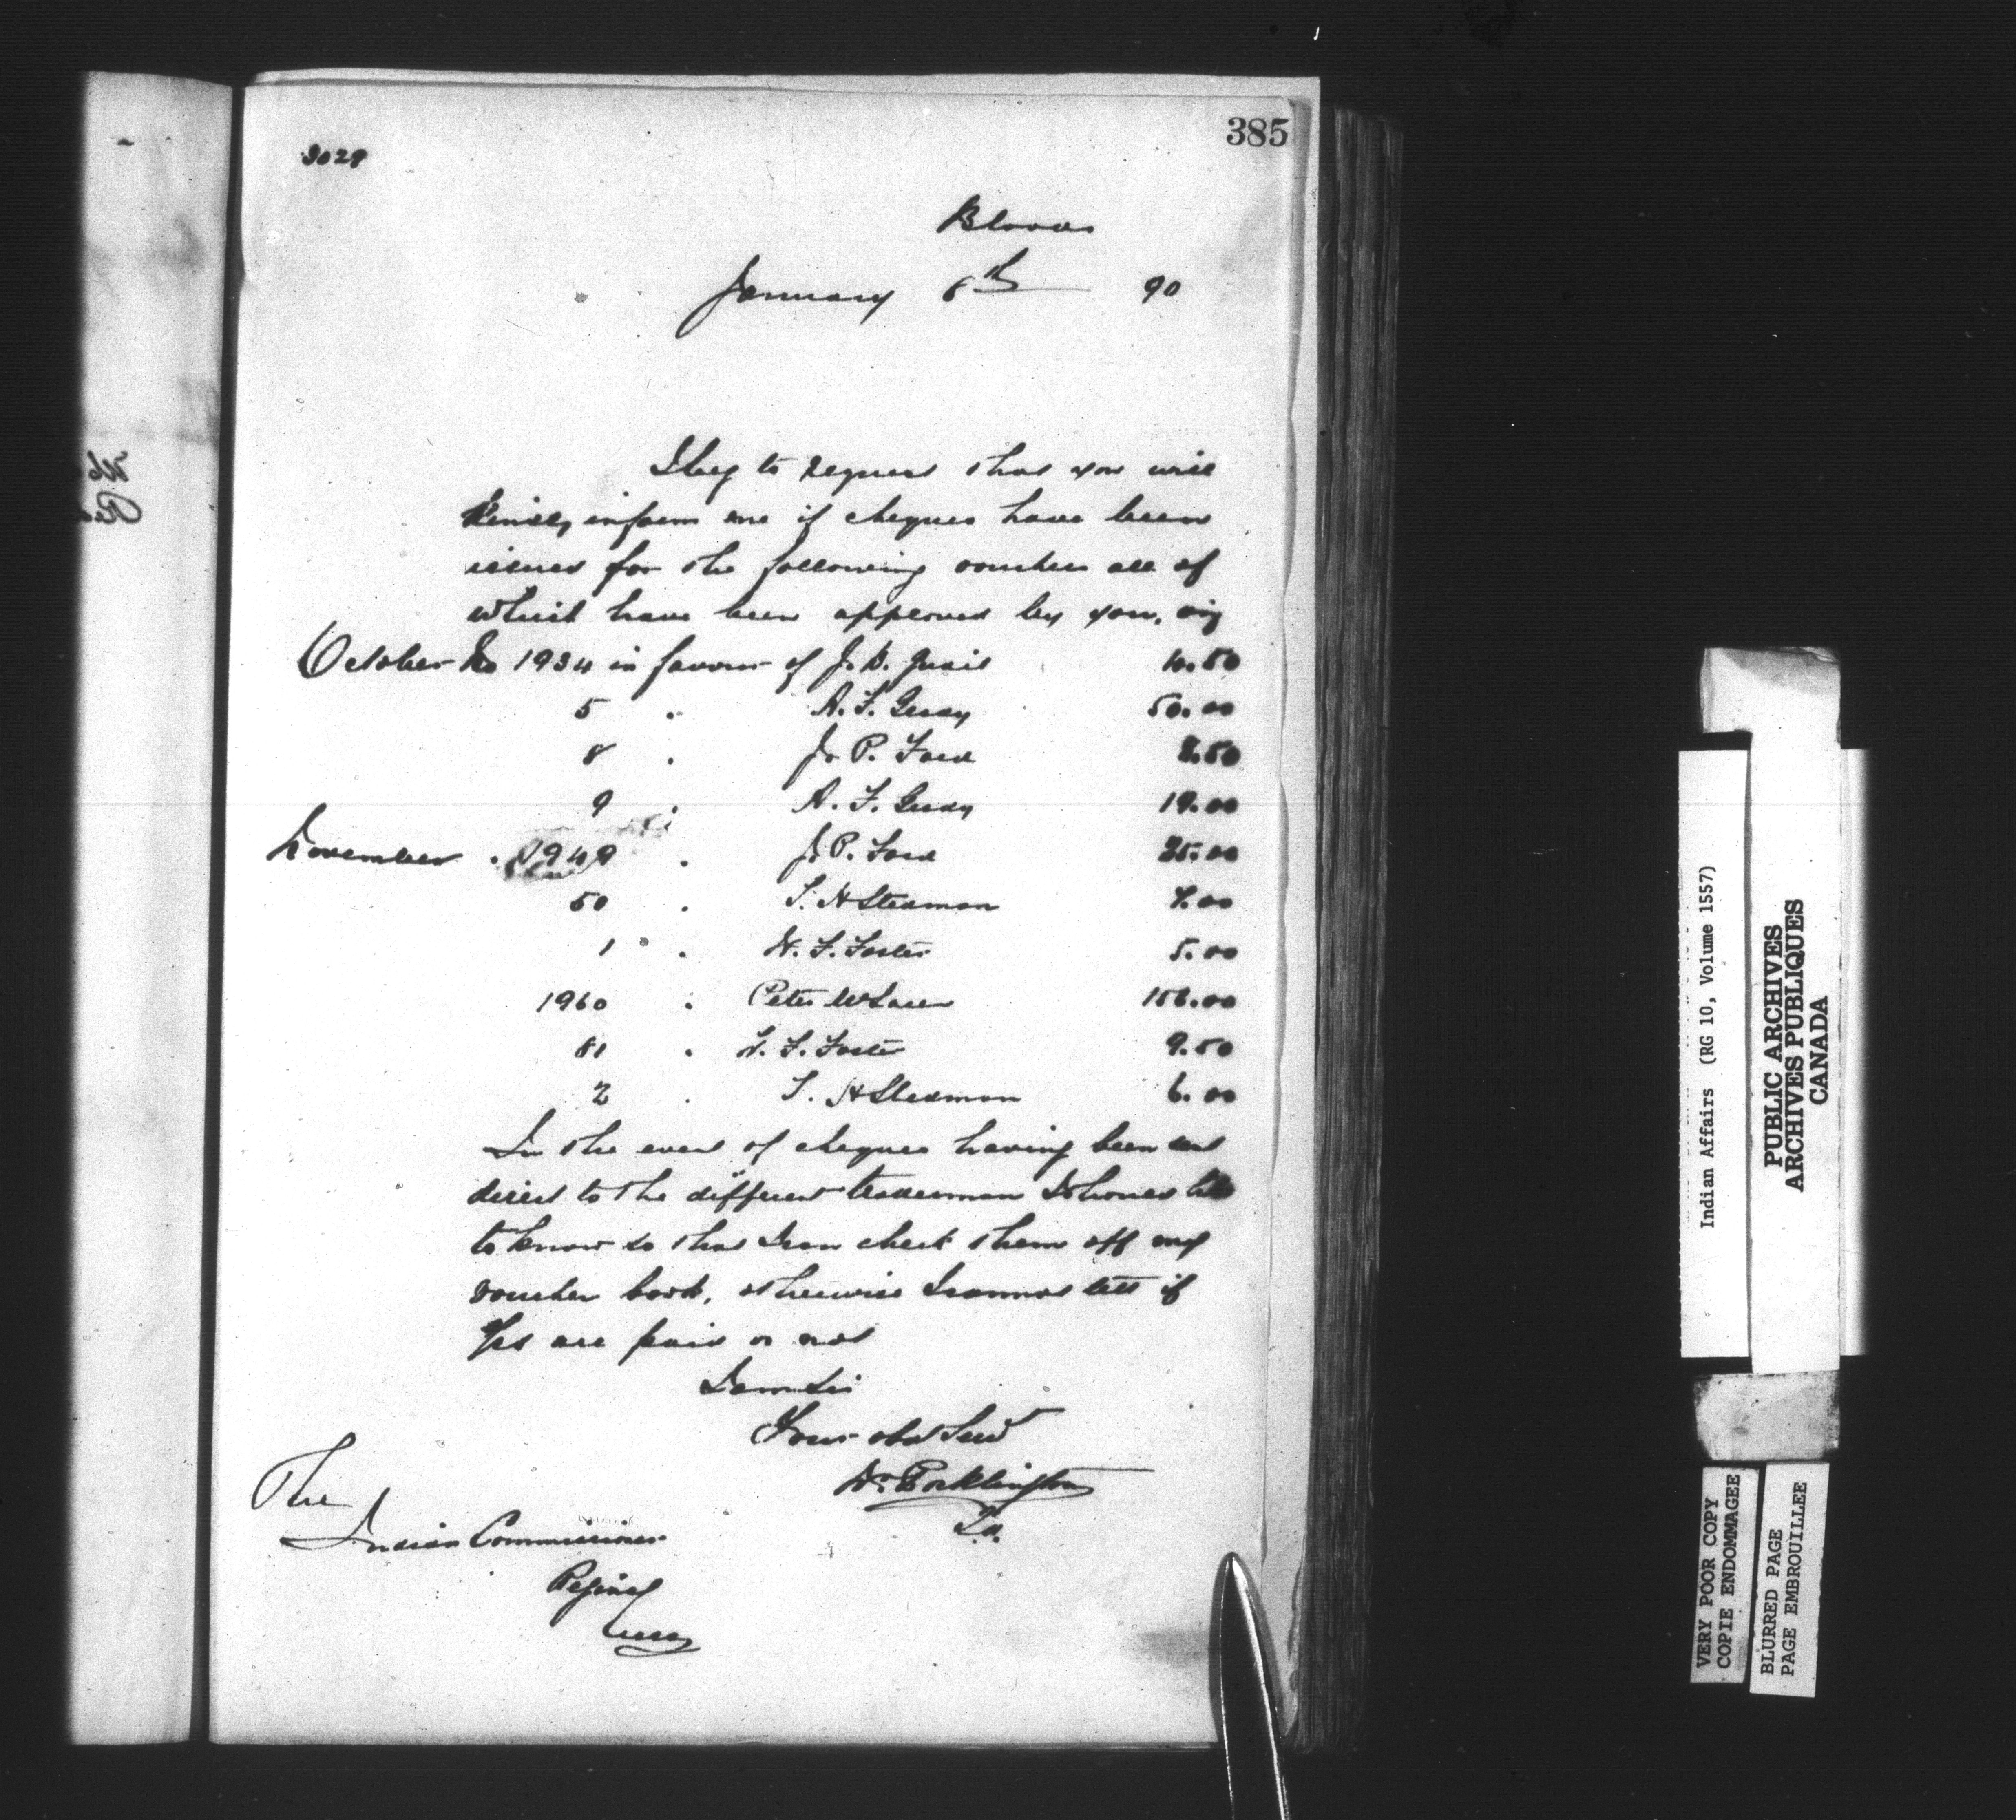 385
3029
Bloods
January 6th 90
I beg to request that you will
kindly inform me if cheques have been
issued for the following vouchers all of
which have been approved by you, viz
October No 1934 in favour of J. D. Quail 10.50
5 . A. F. Grady 50.00
8 . J. P. Ford 8.50
9 . A. F. Grady 19.00
November . 1949 . J. P. Ford 25.00
50 . S. H Steadman 7.00
1 . W. F. Foster 5.00
1960 . Peter 156.00
61 . W. F. Foster 9.50
2 . S. H Steadman 6.00
In the event of cheques having been sent
direct to the different tradesmen I should like
to know so that I can check them off my
voucher book, otherwise I cannot tell if
are paid or not
I am Sir
Your obd Servt
Wm Pocklington
The
Indian Commissioner
Regina
Indian Affairs (RG 10, Volume 1557)
PUBLIC ARCHIVES
ARCHIVES PUBLIQUES
CANADA
VERY POOR COPY
COPIE ENDOMMAGEE
BLURRED PAGE
PAGE EMBROUILLEE